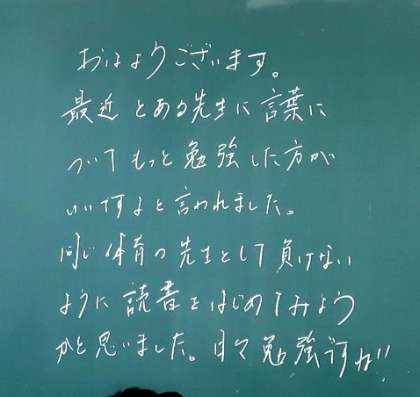 おはようございます。
最近とある先生に言葉に
ついてもっと勉強した方が
いいですよと言われました。
同じ体育の先生として負けない
ように読書をはじめてみよう
かと思いました。日々勉強ですね!!